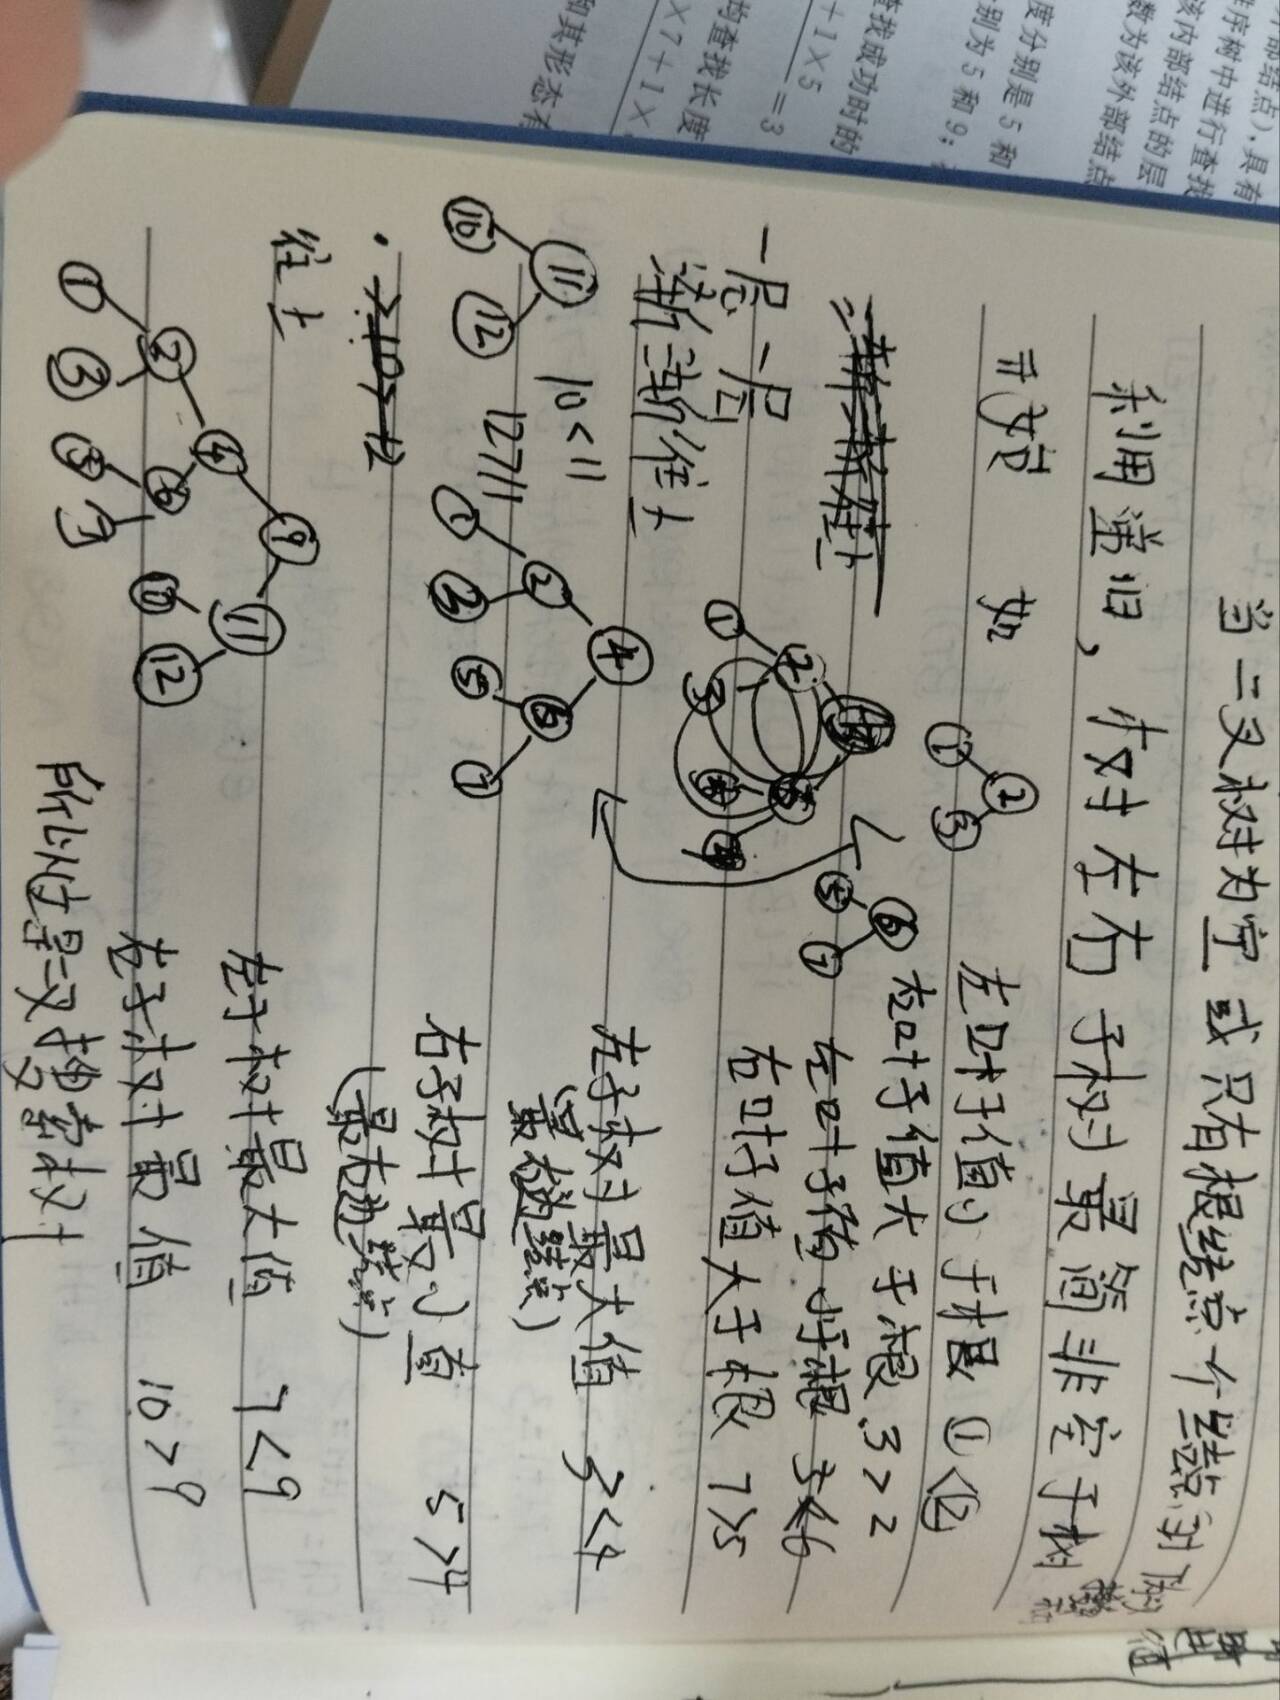 部结点),具有
该内部结点的层
序树中进行查找
数为该外部结点
度分别是5和
别为5和9;
查找成功时的
+1×5
=3
均查找长度
×7+1×
和其形态有
当二叉树为空或只有根结点个结点时
利用递归,树对左右子树最简非空子树
开始 如
① ② ③
左叶子值小于根 ①<②
右叶子值大于根 3>2
⑤ ⑥ ⑦
左叶子值小于根 5<6
右叶子值大于根 7>5
一层一层
渐渐往上
① ② ③
左子树最大值 3<4
(最右边结点)
⑩ ⑪ ⑫
10<11
12>11
① ② ③ ④ ⑤ ⑥ ⑦
右子树最小值 5>4
(最左边结点)
往上
左子树最大值 7<9
① ② ③ ④ ⑤ ⑥ 7 ⑨ ⑩ ⑪ ⑫
右子树最值 10>9
所以它是二叉搜索树